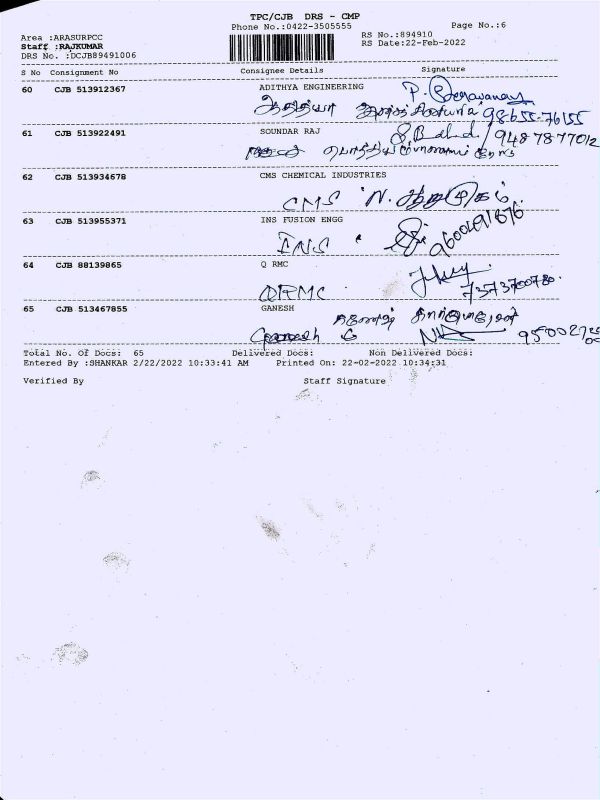 TPC/CJB DRS - CMP
Phone No.:0422-3505555
Page No.:6
Area :ARASURPCC
RS No.:894910
Staff :RAJKUMAR
RS Date:22-Feb-2022
DRS No. :DCJB89491006
S No Consignment No Consignee Details Signature
60 CJB 513912367 ADITHYA ENGINEERING
98655-76155
61 CJB 513922491 SOUNDAR RAJ
9487877012
62 CJB 513934678 CMS CHEMICAL INDUSTRIES
CMS
63 CJB 513955371 INS FUSION ENGG
INS 9600691676
64 CJB 88139865 Q RMC
QRMC 7373700780.
65 CJB 513467855 GANESH
Ganesh
Total No. Of Docs: 65 Delivered Docs: Non Delivered Docs:
Entered By :SHANKAR 2/22/2022 10:33:41 AM Printed On: 22-02-2022 10:34:31
Verified By Staff Signature